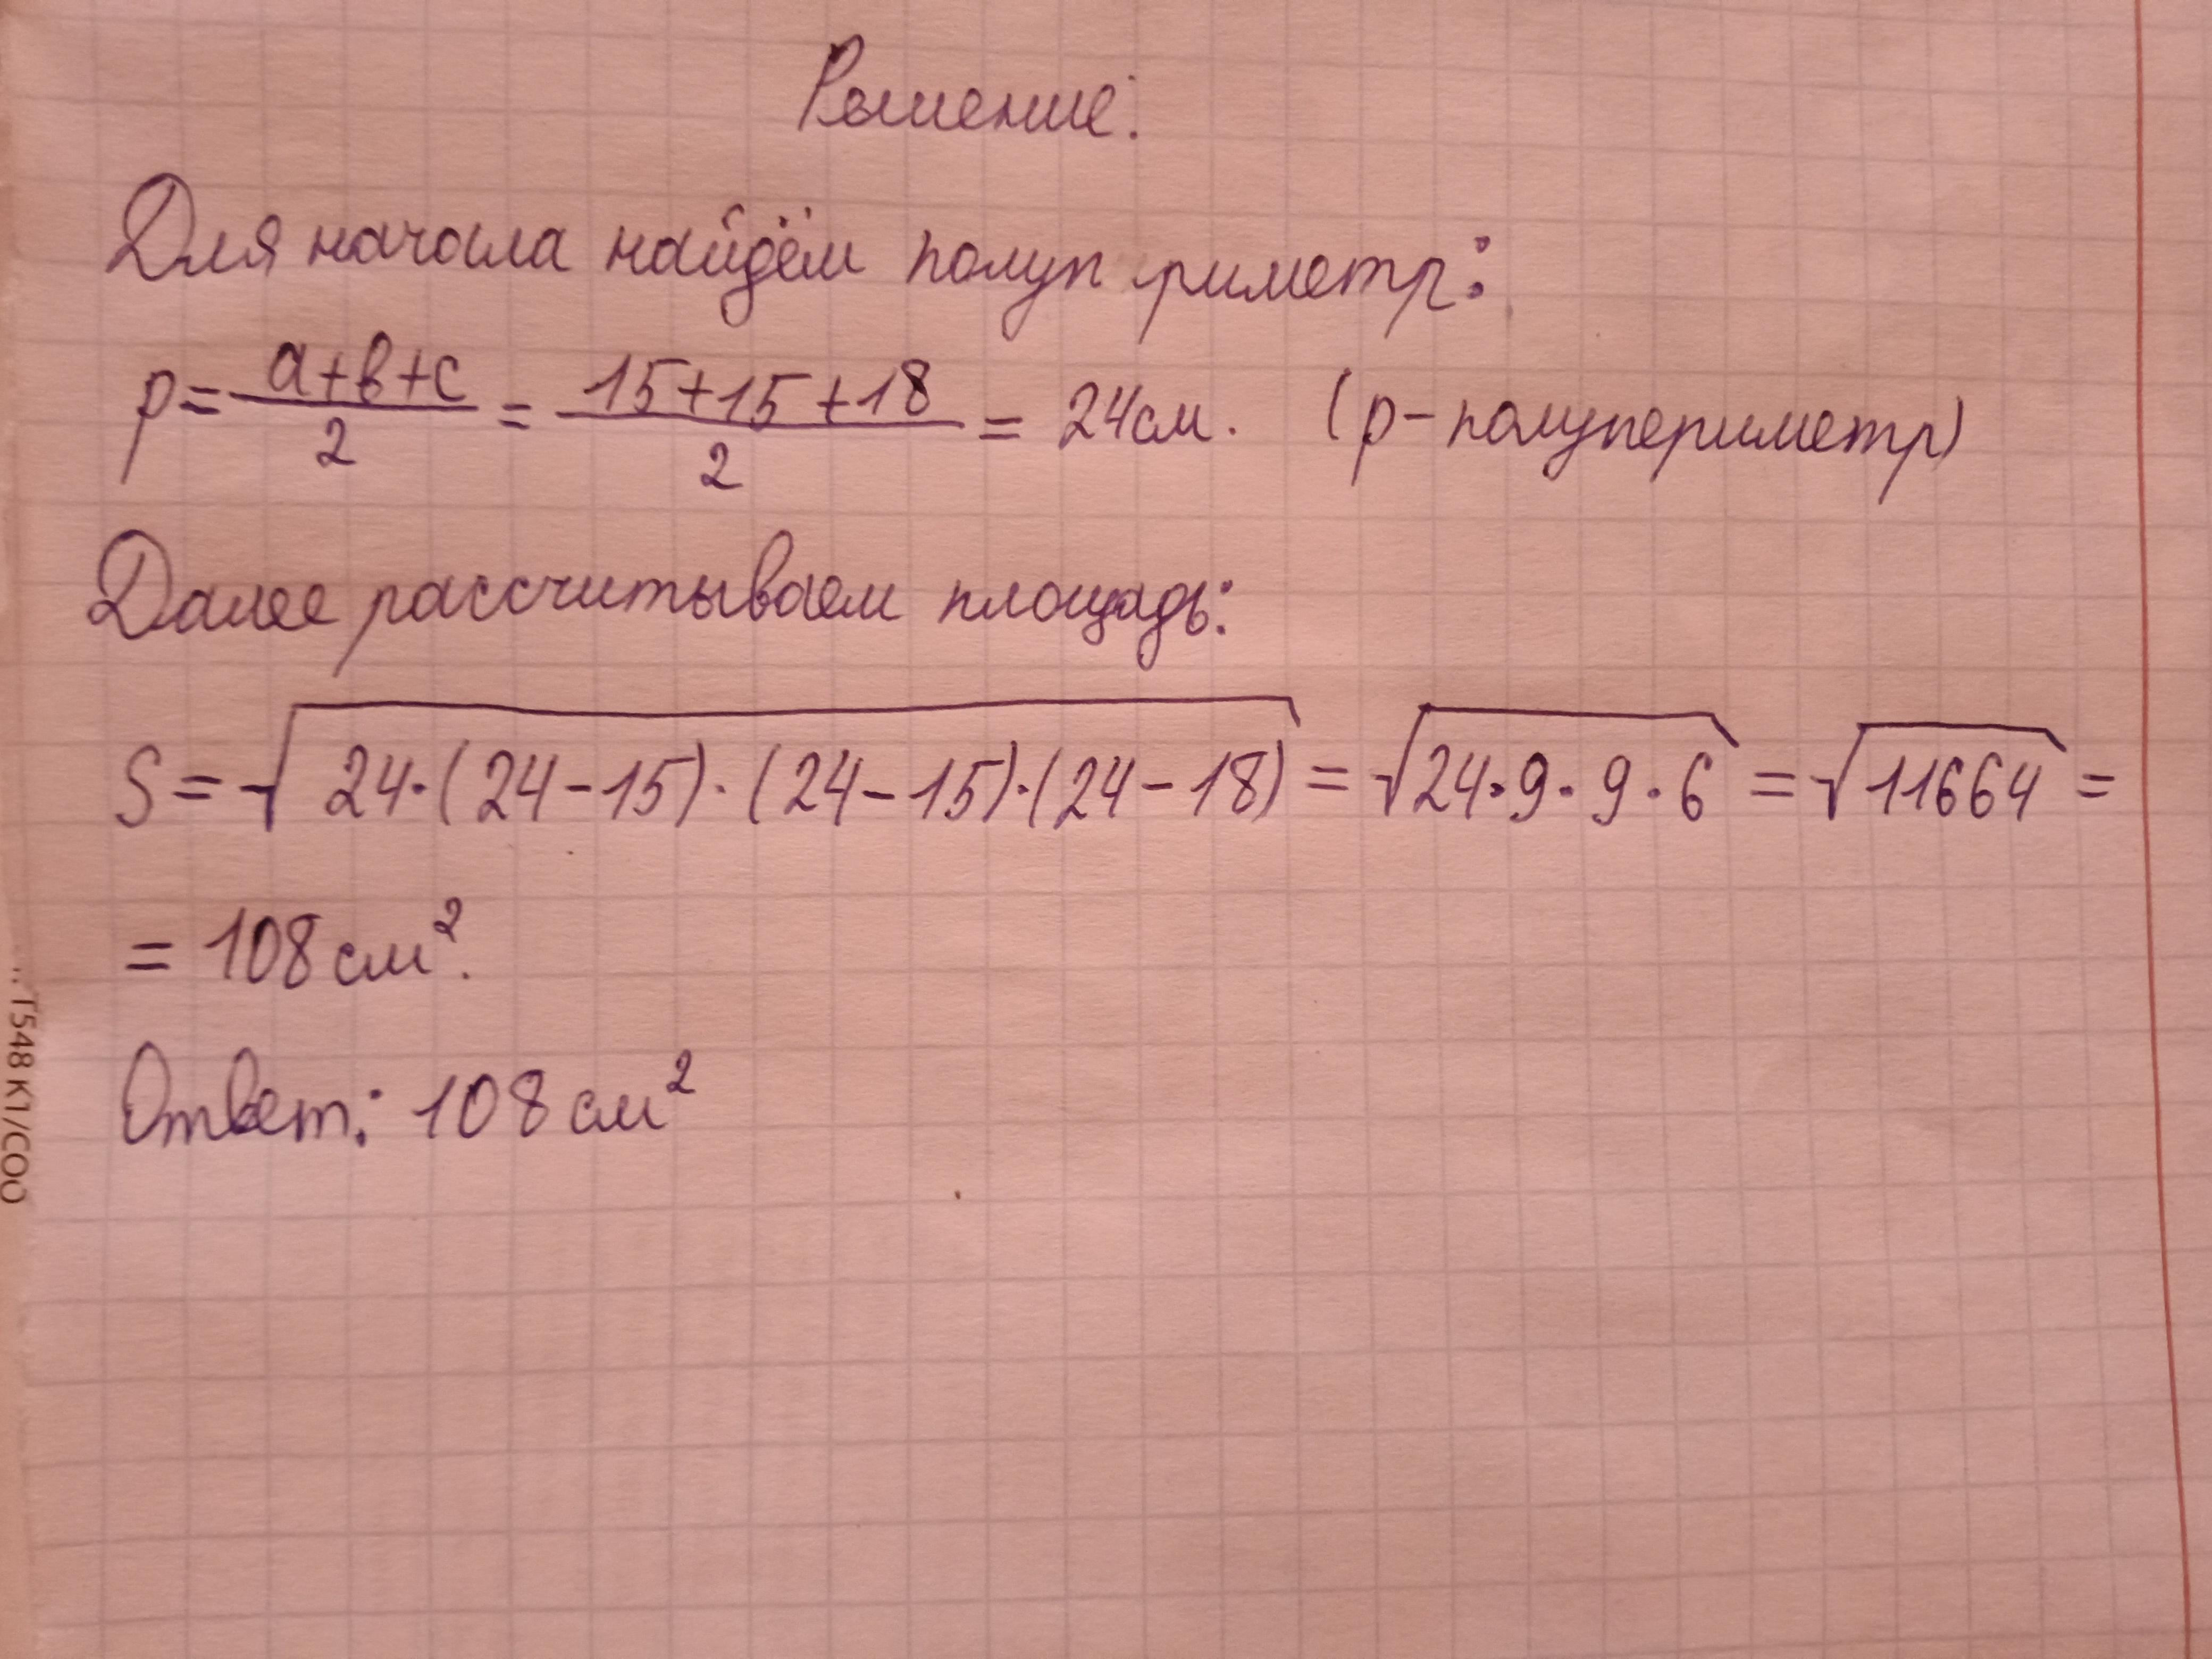 Решение:
Для начала найдём полуп риметр:
p = (a+в+c)/2 = (15+15+18)/2 = 24см. (p-полупериметр)
Далее рассчитываем площадь:
S = √(24·(24-15)·(24-15)·(24-18)) = √(24·9·9·6) = √11664 =
= 108 см².
Ответ: 108 см²
T548 K1/COO